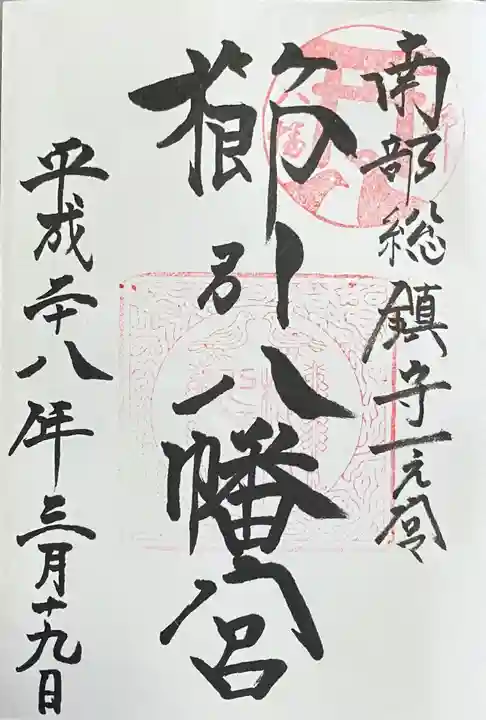 南部総鎮守一之宮
櫛引八幡宮
平成二十八年三月十九日